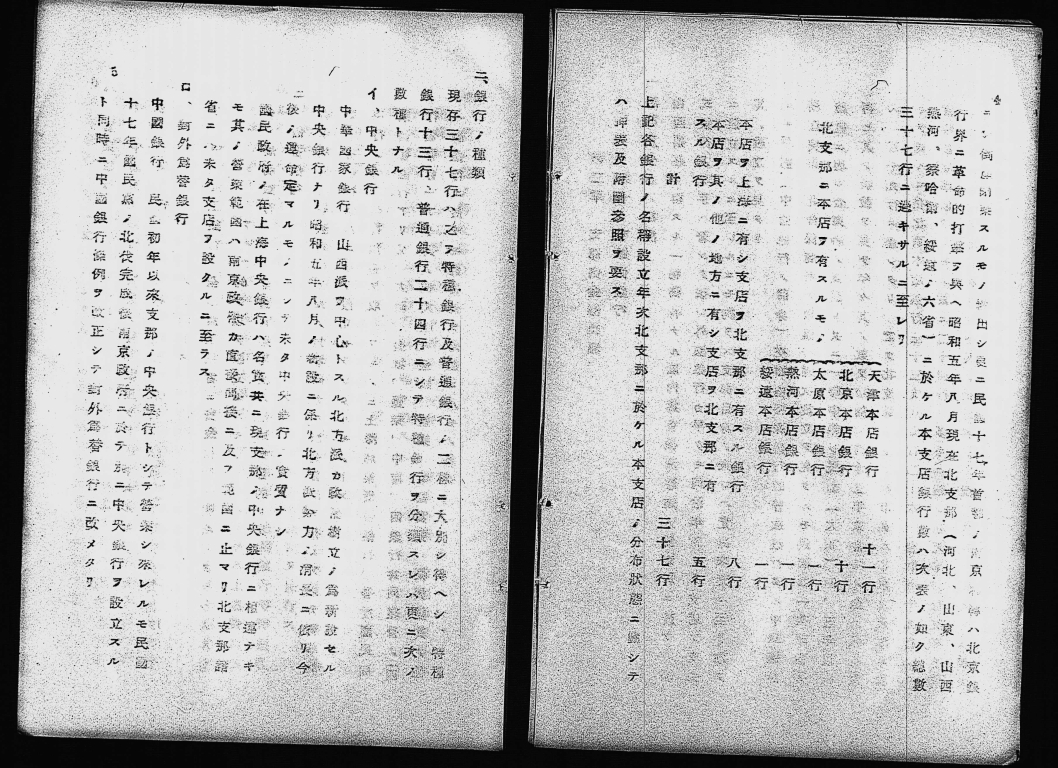 4
スルモノ出シ民十七年首ノ南京ハ北京銀
行界ニ革命的打撃ヲ與ヘ昭和五年八月現在北支那(河北、山東、山西
熱河、察哈爾、綏遠ノ六省)ニ於ケル本支店銀行數ハ次表ノ如ク總數
三十七行ニ過キサルニ至レリ
北支那ニ本店ヲ有スルモノ
天津本店銀行 十一行
北京本店銀行 十行
太原本店銀行 一行
熱河本店銀行 一行
綏遠本店銀行 一行
本店ヲ上海ニ有シ支店ヲ北支那ニ有スル銀行 八行
本店ヲ其ノ他ノ地方ニ有シ支店ヲ北支那ニ有
スル銀行 五行
計 三十七行
上記各銀行ノ名稱設立年次北支那ニ於ケル本支店ノ分布狀態ニ關シテ
ハ別表及附圖參照ヲ要ス
二、銀行ノ種類
現存三十七行ハ之ヲ特種銀行及普通銀行ノ二種ニ大別シ得ヘシ、特種
銀行十三行、普通銀行二十四行ニシテ特種銀行ヲ分類スレハ更ニ次ノ
數種トナル
イ、中央銀行
中華國家銀行 山西派ヲ中心トスル北方派カ政權樹立ノ爲新設セル
中央銀行ナリ昭和五年八月ノ新設ニ係リ北方政勢力ノ消長ニ依リ今
後ノ運命定マルモノニシテ未タ中央銀行ノ實質ナシ
國民政府ノ在上海中央銀行ハ名實共ニ現支那ノ中央銀行ニ相違ナキ
モ其ノ營業範圍ハ南京政權カ直接ニ及フ範圍ニ止マリ北支那諸
省ニハ未タ支店ヲ設クルニ至ラス
ロ、對外爲替銀行
中國銀行 民國初年以來支那ノ中央銀行トシテ營業シ來レルモ民國
十七年國民黨ノ北伐完成後南京政府ニ於テ別ニ中央銀行ヲ設立スル
ト同時ニ中國銀行條例ヲ改正シテ對外爲替銀行ニ改メタリ
5